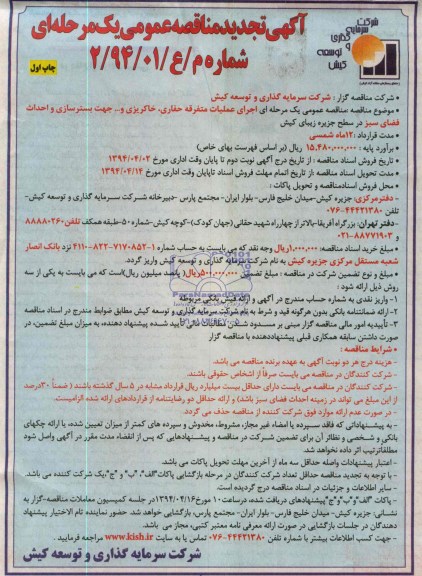 شرکت سرمایه گذاری و توسعه کیش
آگهی تجدید مناقصه عمومی یک مرحله ای
شماره م/ع/۲/۹۴/۰۱
چاپ اول
• شرکت مناقصه گزار : شرکت سرمایه گذاری و توسعه کیش
• موضوع مناقصه: مناقصه عمومی یک مرحله ای اجرای عملیات متفرقه حفاری، خاکریزی و.. جهت بسترسازی و احداث
فضای سبز در سطح جزیره زیبای کیش
• مدت قرارداد: ۱۲ماه شمسی
• برآورد پایه : ۱۵,۴۸۰,۰۰۰,۰۰۰ ریال (بر اساس فهرست بهای خاص)
• تاریخ فروش اسناد مناقصه : از تاریخ درج آگهی نوبت دوم تا پایان وقت اداری مورخ ۱۳۹۴/۰۴/۰۲
• مدت تحویل اسناد مناقصه: از تاریخ اتمام مهلت فروش اسناد تاپایان وقت اداری مورخ ۱۳۹۴/۰۴/۱۴
• محل فروش اسنادمناقصه و تحویل پاکات :
-دفترمرکزی: جزیره کیش-میدان خلیج فارس- بلوار ایران- مجتمع پارس -دبیرخانه شرکت سرمایه گذاری و توسعه کیش-
تلفن ۴۴۴۲۱۳۸۰-۰۷۶
-دفتر تهران: بزرگراه آفریقا-بالاتر از چهارراه شهید حقانی (جهان کودک)-کوچه کیش-شماره ۵۰-طبقه همکف تلفن ۸۸۸۸۰۲۶۰
۰۲۱-۸۸۷۷۱۹۰۲
• مبلغ خرید اسناد مناقصه: ۱,۰۰۰,۰۰۰ریال وجه نقد که می بایست به حساب شماره ۱-۷۱۷۰۸۵۲-۸۲۲-۴۱۱۰ نزد بانک انصار
شعبه مستقل مرکزی جزیره کیش به نام شرکت سرمایه گذاری و توسعه کیش واریز گردد.
• مبلغ و نوع تضمین شرکت در مناقصه : مبلغ تضمین ۵۰۰,۰۰۰,۰۰۰ریال( پانصد میلیون ریال)است که می بایست به یکی از سه
روش ذیل ارائه شود :
۱- واریز نقدی به شماره حساب مندرج در آگهی و ارائه فیش بانکی مربوطه
۲- ارائه ضمانتنامه بانکی بدون هرگونه قید و شرط به نام شرکت سرمایه گذاری و توسعه کیش مطابق ضوابط مندرج در اسناد مناقصه
۳- تأییدیه امور مالی مناقصه گزار مبنی بر مسدود شدن مطالبات تأیید شده پیشنهاد دهنده، به میزان مبلغ تضمین، در
صورت داشتن سابقه همکاری قبلی پیشنهاددهنده با مناقصه گزار
• شرایط مناقصه :
- هزینه درج هر دو نوبت آگهی به عهده برنده مناقصه می باشد.
- شرکت کنندگان در مناقصه می بایست صرفاً از اشخاص حقوقی باشند.
- شرکت کنندگان در مناقصه می بایست دارای حداقل بیست میلیارد ریال قرارداد مشابه در ۵ سال گذشته باشند ( ضمناً ۳۰درصد
از این مبلغ می تواند در زمینه احداث فضای سبز باشد) و ارائه حداقل دو رضایتنامه از قراردادهای ارائه شده الزامیست.
- در صورت عدم ارائه موارد فوق شرکت کننده از مناقصه حذف می گردد.
- به پیشنهاداتی که فاقد سپرده یا امضاء غیر مجاز، مشروط، مخدوش و سپرده های کمتر از میزان تعیین شده، یا ارائه چکهای
بانکی و شخصی و نظائر آن برای تضمین شرکت در مناقصه و پیشنهادهایی که پس از انقضاء مدت مقرر در آگهی واصل شود
مطلقاً ترتیب اثر داده نخواهد شد.
- اعتبار پیشنهادات واصله حداقل سه ماه از آخرین مهلت تحویل پاکات می باشد.
- با توجه به تجدید مناقصه حداقل تعداد شرکت کنندگان در مرحله بازگشایی پاکات"الف"، "ب" و "ج"،یک شرکت کننده می باشد.
- سایر اطلاعات و جزئیات در اسناد مناقصه درج گردیده است.
- پاکات "الف"و"ب"و"ج"پیشنهادهای دریافت شده، درساعت ۱۰ مورخ ۱۳۹۴/۰۴/۱۶در جلسه کمیسیون معاملات مناقصه-گزار به
نشانی: جزیره کیش- میدان خلیج فارس- بلوار ایران- مجتمع پارس، بازگشایی خواهد شد. حضور نماینده تام الاختیار پیشنهاد
دهندگان در جلسات بازگشایی در صورت ارائه معرفی نامه معتبر کتبی، مجاز می باشد.
- جهت کسب اطلاعات بیشتر با شماره تلفن ۴۴۴۲۱۳۸۰-۰۷۶ تماس یا به سایت www.kish.ir مراجعه فرمایید .
شرکت سرمایه گذاری و توسعه کیش